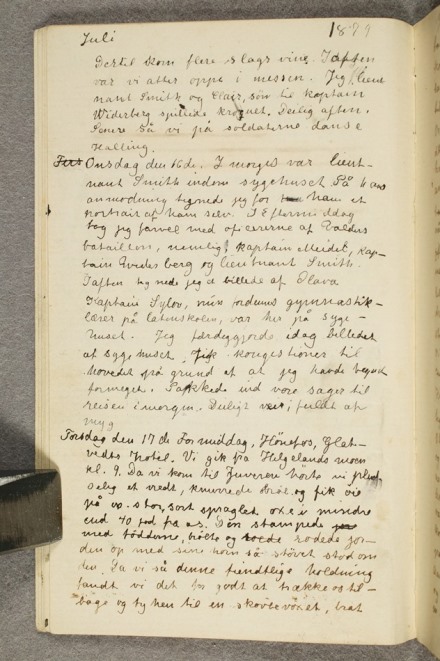 Juli 1879
Dertil kom flere slags vine. Iaften
var vi atter oppe i messen. Jeg, lieut
nant Smith og Clair, søn til kaptain
Wideberg spillede kroquet. Deilig aften.
Senere så vi på soldaterne danse
Halling.
Onsdag den 16de. I morges var lieut-
nant Smith indom sygehuset. På hans
anmodning tegnede jeg for ham et
portrait af ham selv. I Eftermiddag
tog jeg farvel med officererne af Valders
bataillon, nemlig kaptain Meidel, kap-
tain Wideberg og lieutnant Smith.
Iaften tegnede jeg et billede af Olava
Kaptain Sylov, min fordums gymnastik-
lærer på latinskolen, var her på syge-
huset. Jeg færdiggjorde idag billedet
af sygehuset, fik kongestioner til
hovedet på grund af at jeg havde
formeget. Pakkede ind vore sager til
reisen imorgen. Deiligt veir, fuldt af
myg
Torsdag den 17de Formiddag, Hönefos, Glat-
vedts Hotel. Vi gik fra Helgelands moen
kl. 9. Da vi kom til hörte vi plud
selig et vredt, knurrende bröl og fik öie
på en stor, sort spraglet oxe i mindre
end 40 fod fra os. Den stampede
med födderne, brölte og rodede jor-
den op med sine horn så stövet stod om
den. Da vi så denne fiendtlige holdning
fandt vi det for godt at trække os til-
bage og ty hen til en skovbevoxet, brat